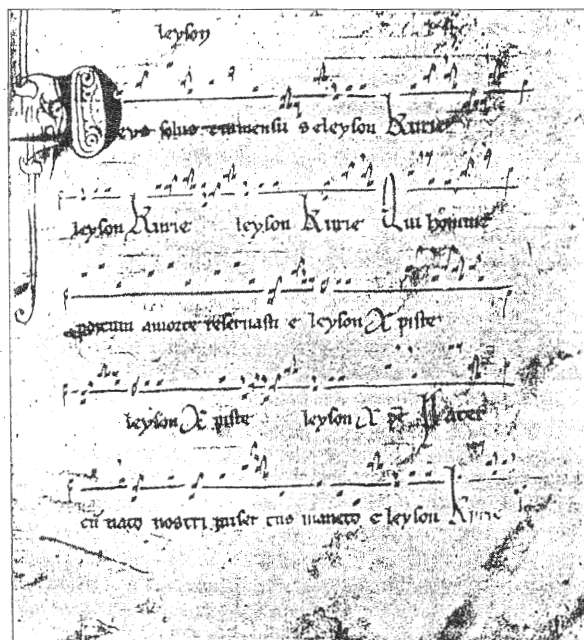 leyson
Deus solus et inmensus eleyson Kyrie
leyson Kyrie leyson Kyrie Qui hominem
morte reservasti e leyson Xpiste
leyson Xpiste leyson Pater
cū nato nostri maneto e leyson Kyrie